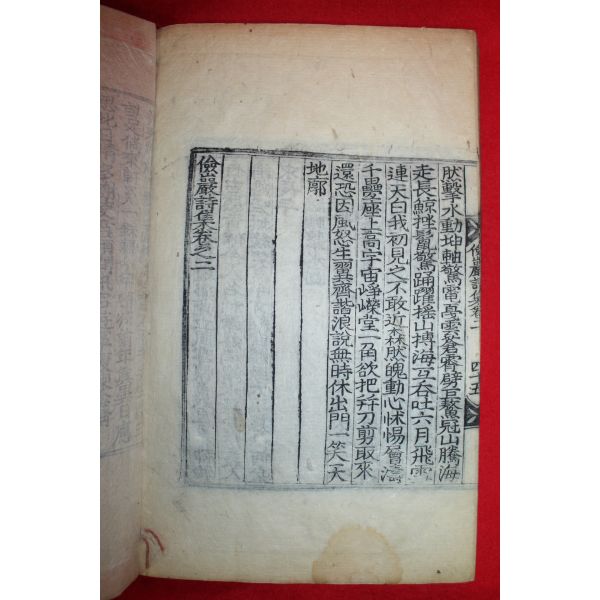 肰擊水動坤軸驚電亂雲裂奮霄劈巨鰲冠山騰海
走長鯨挫鬣驚踊躍撼山搏海互呑吐六月飛雪
連天白我初見之不敢近森然魄動心怵惕層濤
千疊座上高宇宙崢嶸堂一角欲把幷刀剪取來
還恐因風怒生翼齊諧浪說無時休出門一笑天
地廓
儉巖詩集卷之二
儉巖詩集卷二
四十五